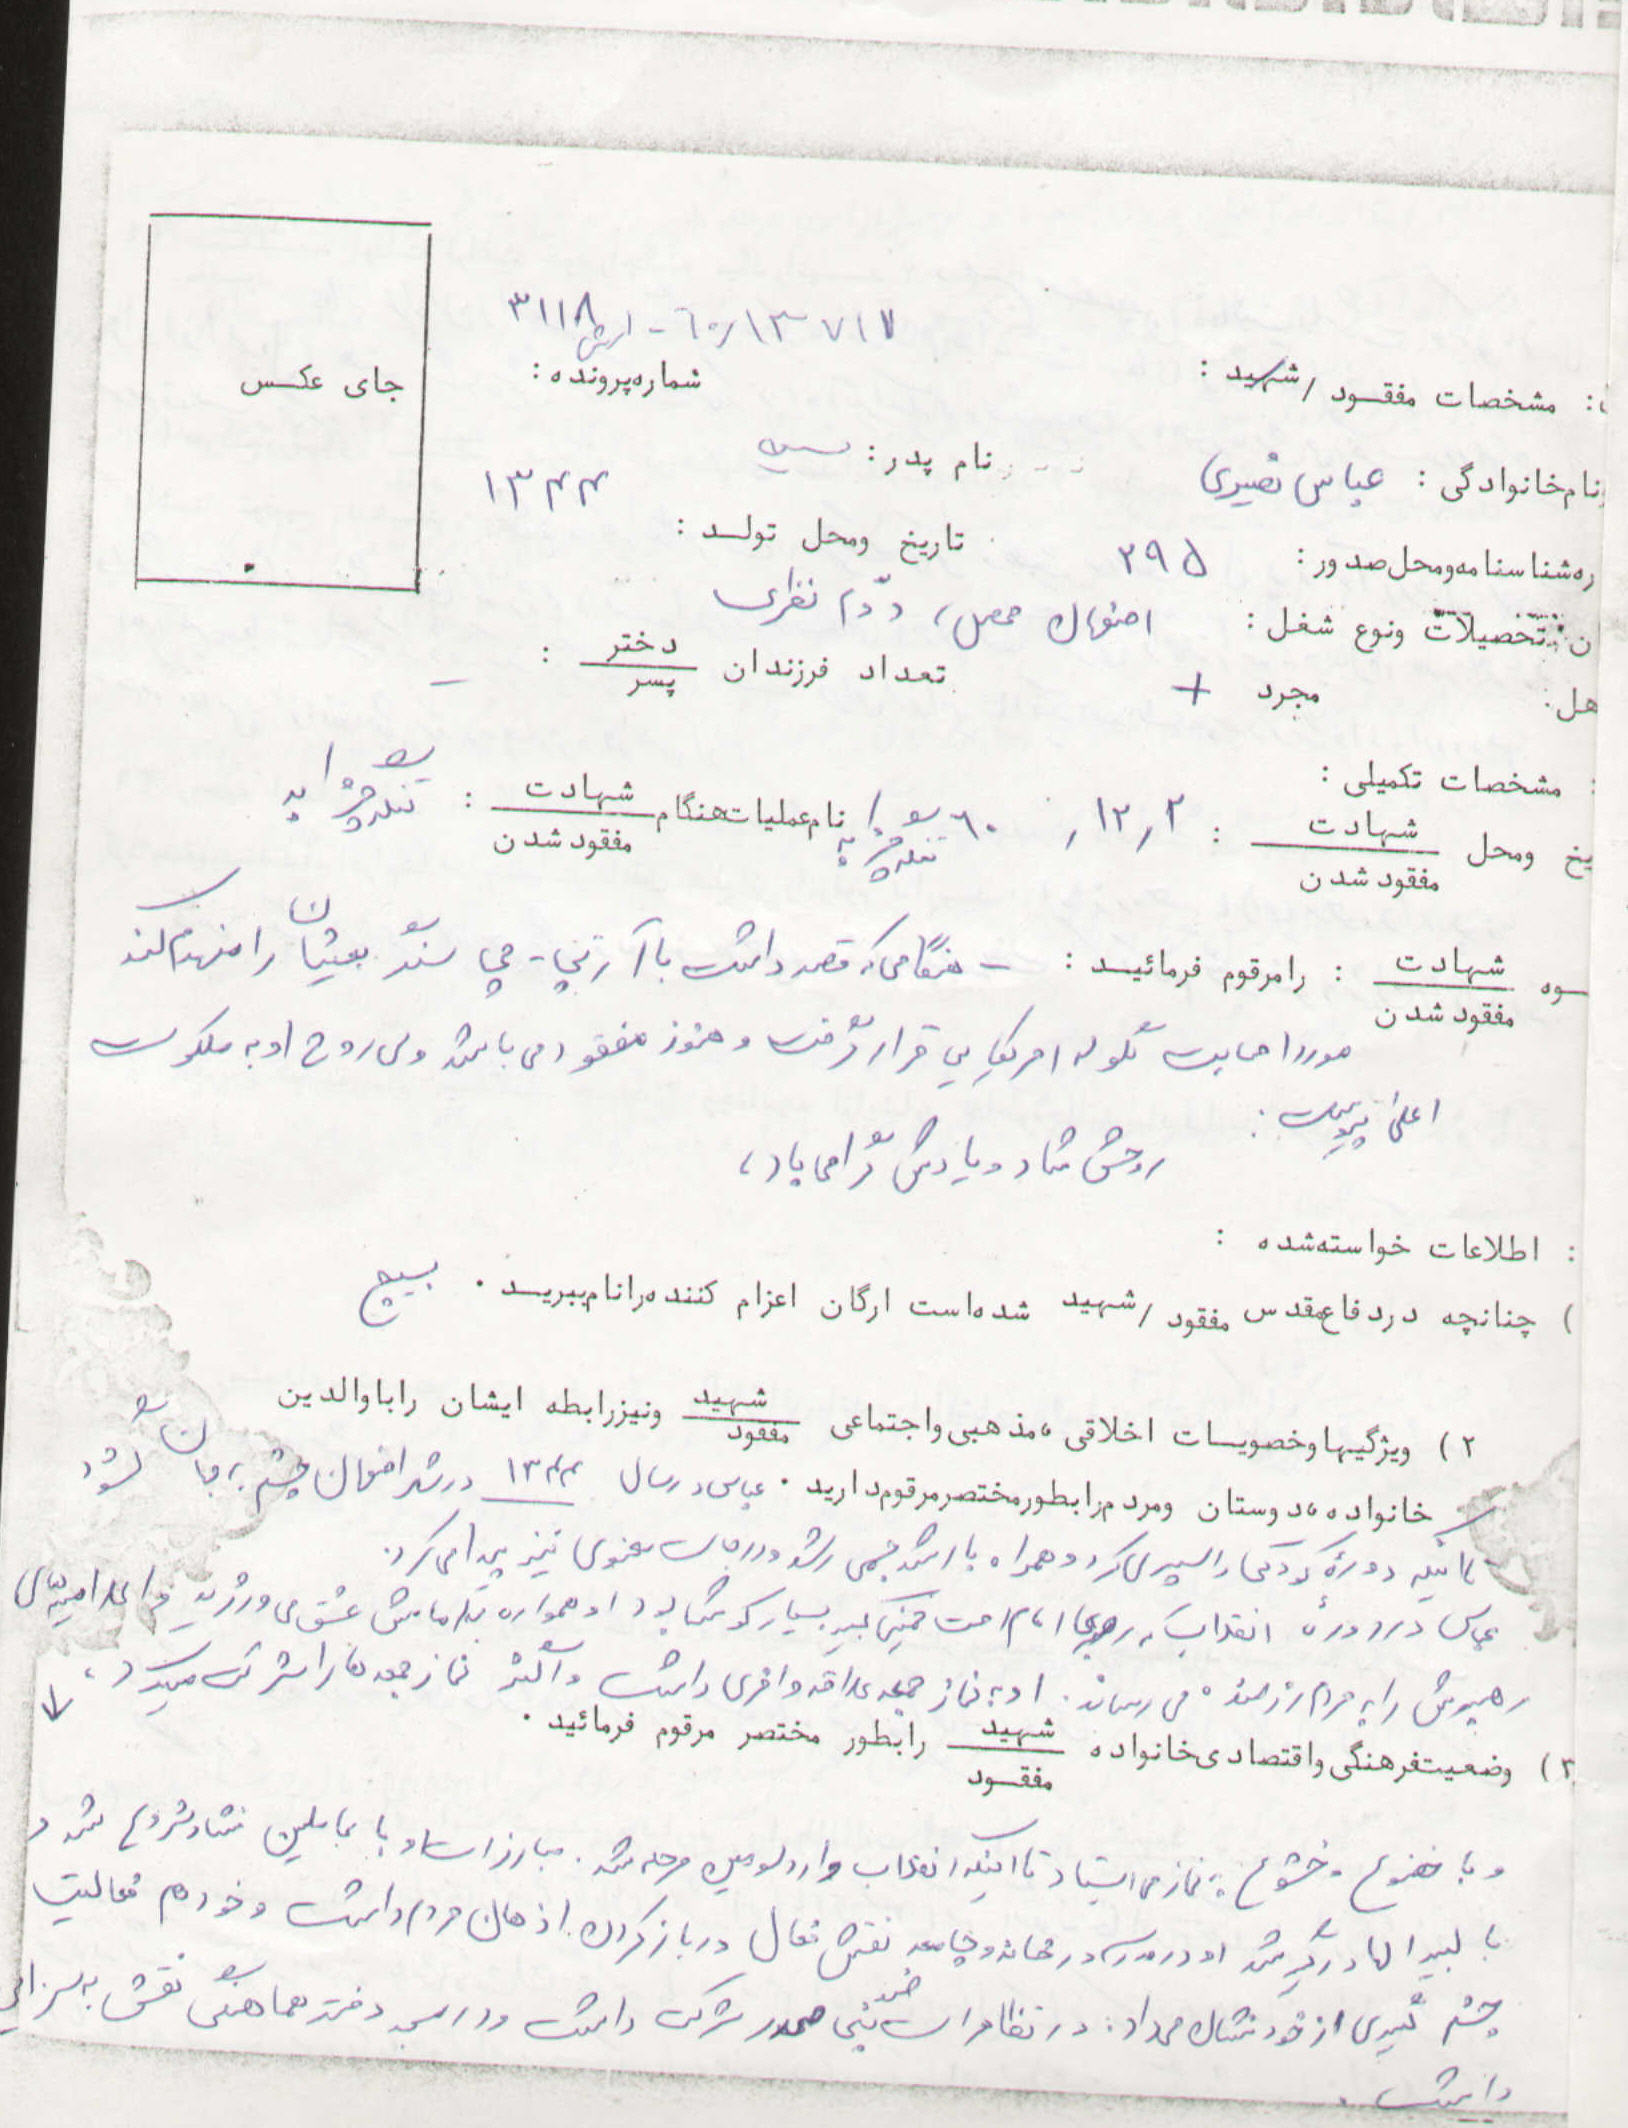 ۶۰/۱۳۷۱۷ - ارتش ۳۱۱۸
: مشخصات مفقود / شهید : شماره پرونده :
جای عکس
نام خانوادگی : عباس نصیری نام پدر :
ره شناسنامه و محل صدور : ۲۹۵ تاریخ و محل تولد : ۱۳۴۴
ن : تحصیلات و نوع شغل : اصفهان محصل، دوّم نظری
هل : مجرد + تعداد فرزندان دختر / پسر : –
: مشخصات تکمیلی :
یخ و محل شهادت / مفقود شدن : ۶۰,۱۲,۲ تنگه چزابه نام عملیات هنگام شهادت / مفقود شدن : تنگه چزابه
سوه شهادت / مفقود شدن : را مرقوم فرمائید : – هنگامی که قصد داشت با آر - پی - جی سنگر بعثیان را منهدم کند
مورد اصابت گلوله امریکایی قرار گرفت و هنوز مفقود می باشد ولی روح او به ملکوت
اعلی پیوست .
روحش شاد و یادش گرامی باد،
: اطلاعات خواسته شده :
) چنانچه در دفاع مقدس مفقود / شهید شده است ارگان اعزام کننده را نام ببرید . بسیج
۲) ویژگیها و خصوصیات اخلاقی ، مذهبی و اجتماعی شهید / مفقود و نیز رابطه ایشان را با والدین
خانواده ، دوستان و مردم را بطور مختصر مرقوم دارید . عباس در سال ۱۳۴۴ در شهر اصفهان چشم به جهان گشود
تا اینکه دورهٔ کودکی را سپری کرد و همراه با رشد جسمی رشد و درجات معنوی نیز پیدا می کرد.
عباس در دورهٔ انقلاب به رهبری امام امت خمینی کبیر بسیار کوشا بود او همواره به امامش عشق می ورزید و اعلامیه های
رهبرش را به مردم رزمنده می رساند . او به نماز جمعه علاقه وافری داشت و اکثر نماز جمعه ها را شرکت میکرد،
۳) وضعیت فرهنگی و اقتصادی خانواده شهید / مفقود را بطور مختصر مرقوم فرمائید .
و با خضوع و خشوع به نماز می ایستاد تا اینکه انقلاب وارد سومین مرحله شد . مبارزات او با شروع شد و
با لیبرالها درگیر شد او در مدرسه در خانه و جامعه نقش فعال در باز کردن اذهان مردم داشت و خود هم فعالیت
چشم گیری از خود نشان میداد . در تظاهرات ضد بنی صدر شرکت داشت و در دفتر هماهنگی نقش به سزایی
داشت .